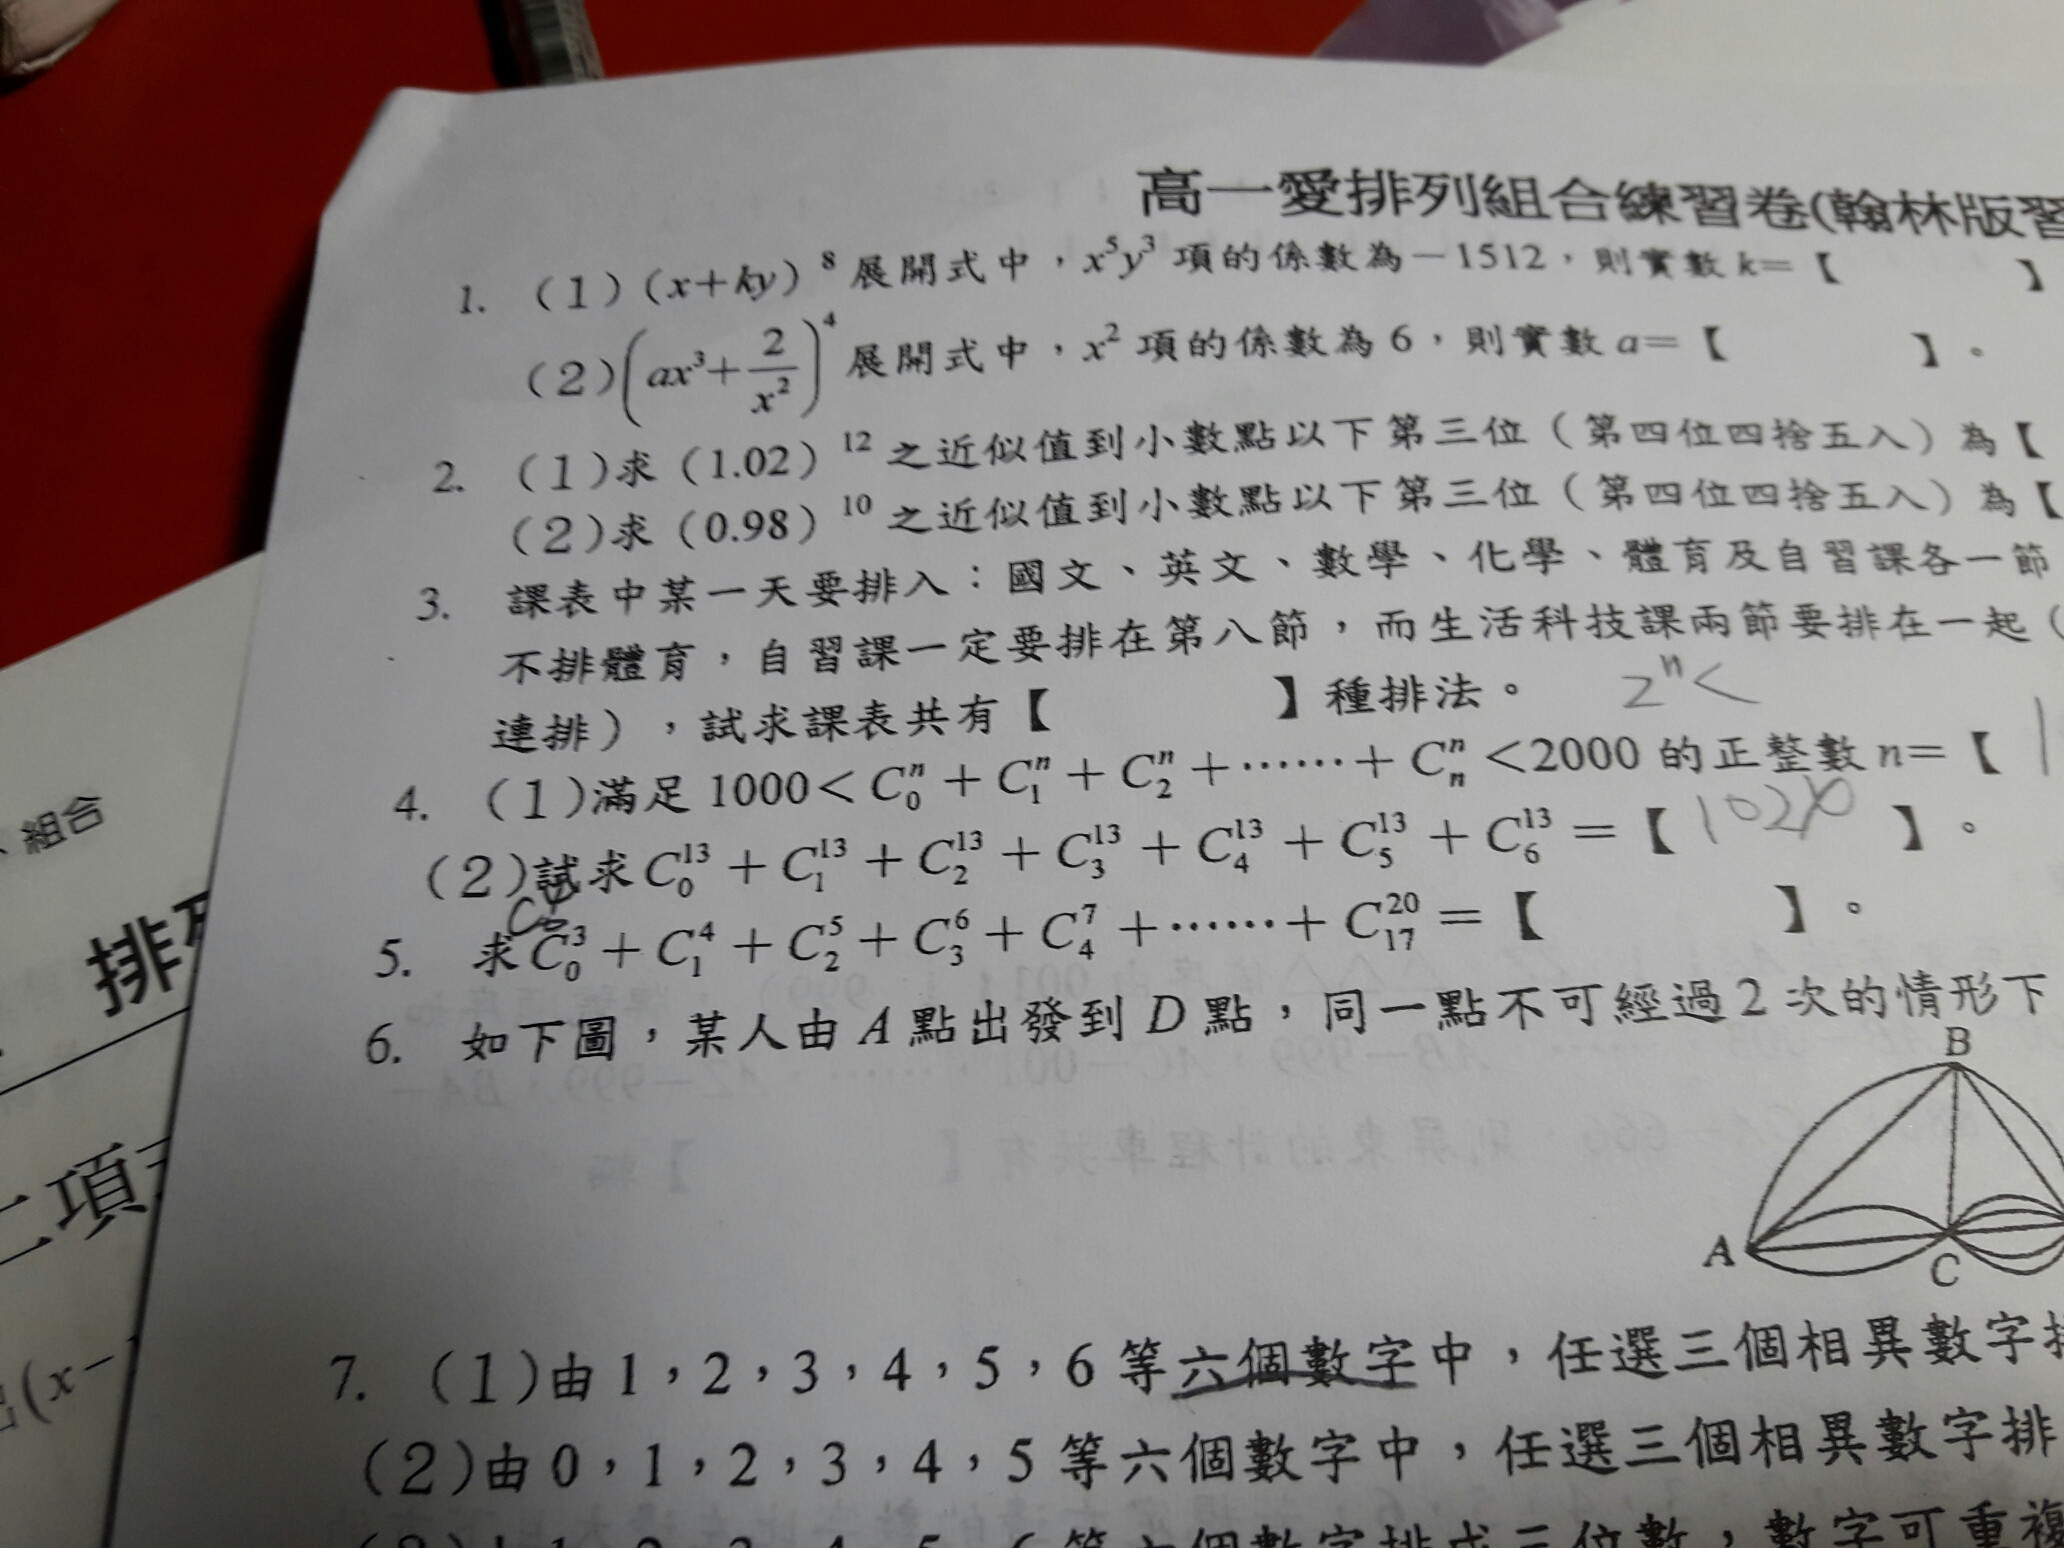 高一愛排列組合練習卷(翰林版習
1. (1)(x+ky)⁸展開式中，x⁵y³項的係數為－1512，則實數k=【 】
(2)(ax³+2/x²)⁴展開式中，x²項的係數為6，則實數a=【 】。
2. (1)求(1.02)¹²之近似值到小數點以下第三位(第四位四捨五入)為【
(2)求(0.98)¹⁰之近似值到小數點以下第三位(第四位四捨五入)為【
3. 課表中某一天要排入：國文、英文、數學、化學、體育及自習課各一節
不排體育，自習課一定要排在第八節，而生活科技課兩節要排在一起(
連排)，試求課表共有【 】種排法。 2ⁿ<
4. (1)滿足1000<C₀ⁿ+C₁ⁿ+C₂ⁿ+⋯⋯+Cₙⁿ<2000的正整數n=【
(2)試求C₀¹³+C₁¹³+C₂¹³+C₃¹³+C₄¹³+C₅¹³+C₆¹³=【 】。
5. 求C₀³+C₁⁴+C₂⁵+C₃⁶+C₄⁷+⋯⋯+C₁₇²⁰=【 】。
6. 如下圖，某人由A點出發到D點，同一點不可經過2次的情形下
B
A
C
7. (1)由1，2，3，4，5，6等六個數字中，任選三個相異數字
(2)由0，1，2，3，4，5等六個數字中，任選三個相異數字排
數字排成三位數，數字可重複
組合
排列
二項
(x－